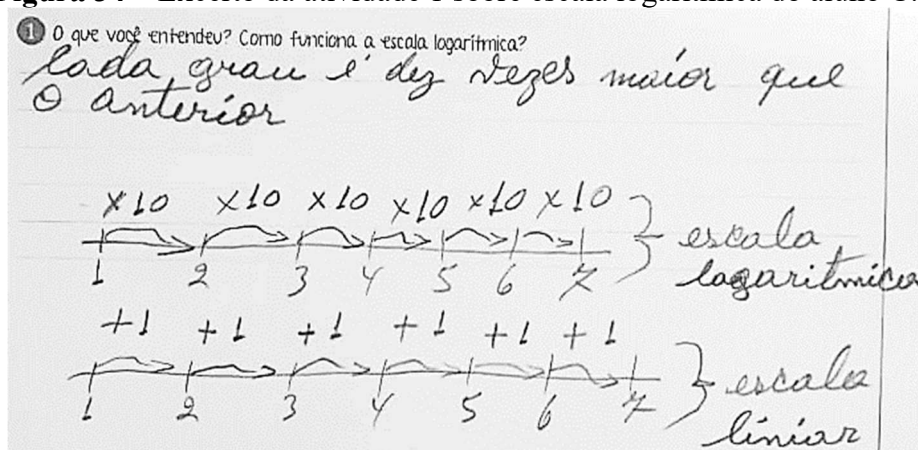 1 O que você entendeu? Como funciona a escala logarítmica?
Cada grau é dez vezes maior que
o anterior
×10 ×10 ×10 ×10 ×10 ×10
1 2 3 4 5 6 7
escala
logaritmica
+1 +1 +1 +1 +1 +1
1 2 3 4 5 6 7
escala
liniar